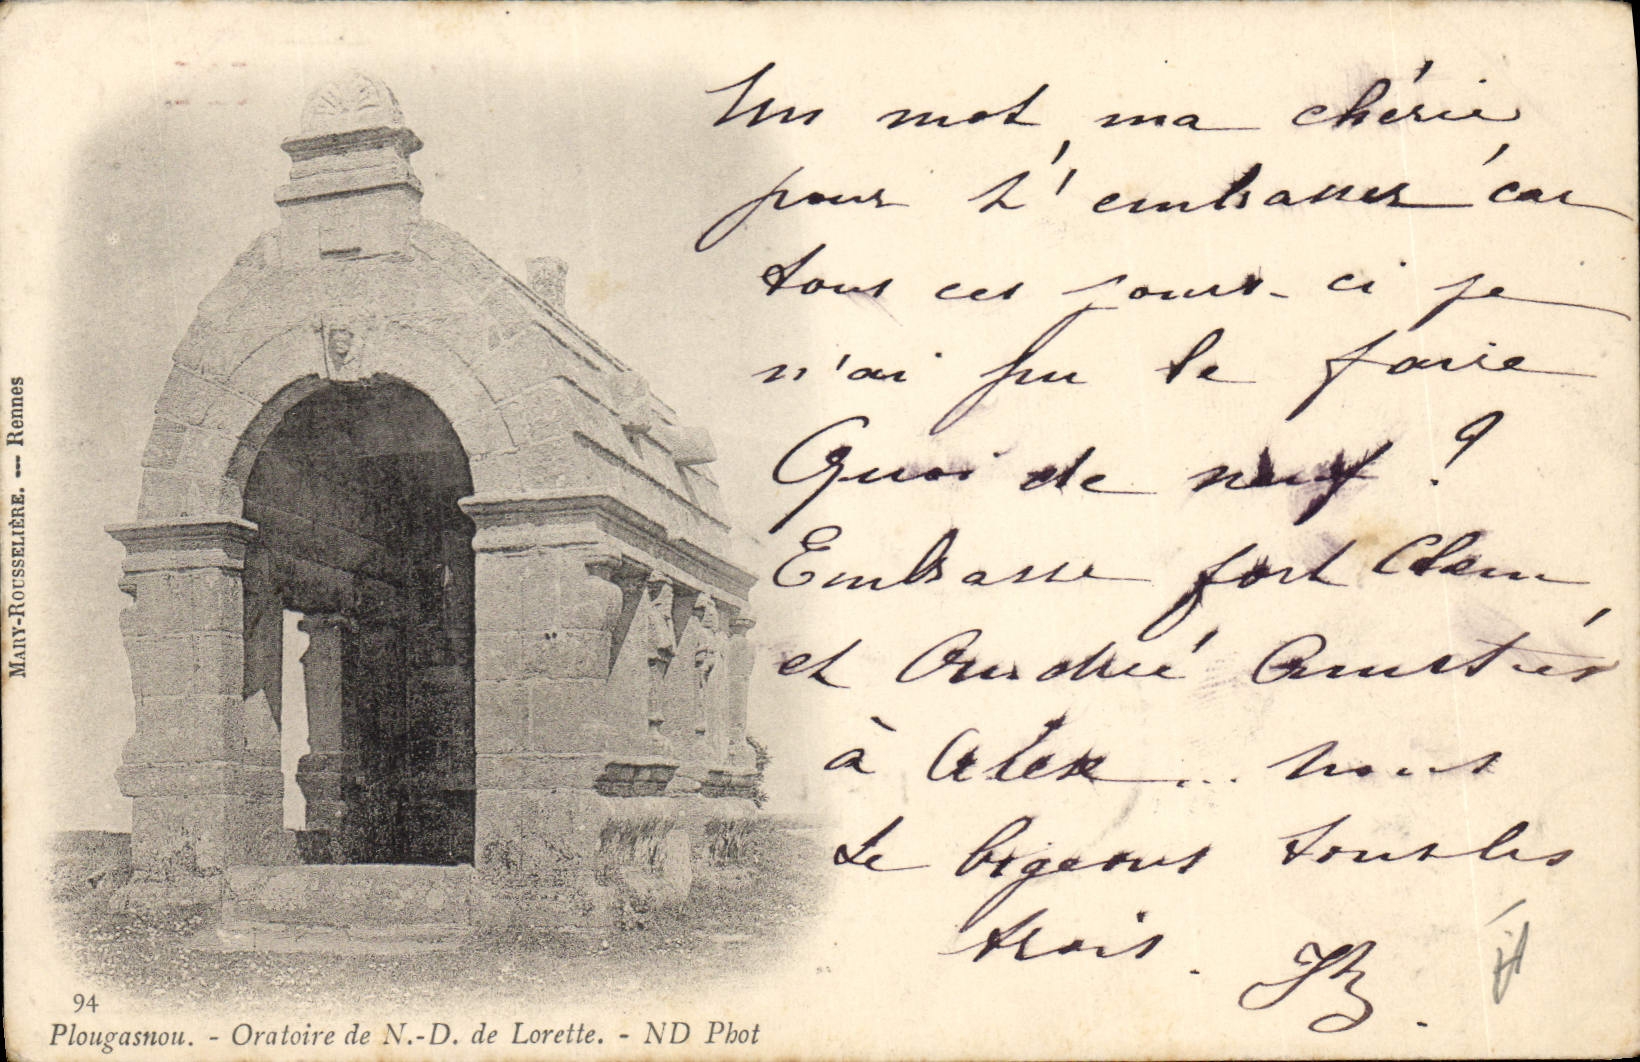 Un mot, ma chérie
pour t'embrasser car
tous ces jours-ci je
n'ai pu le faire
Quoi de neuf ?
Embrasse fort Clem
et André Amitiés
à Alex... nous
te bigeons tous les
trois.
MARY-ROUSSELIÈRE. — Rennes
94
Plougasnou. - Oratoire de N.-D. de Lorette. - ND Phot